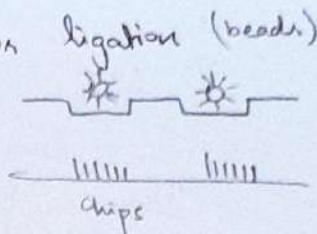 ligation (beads)
chips